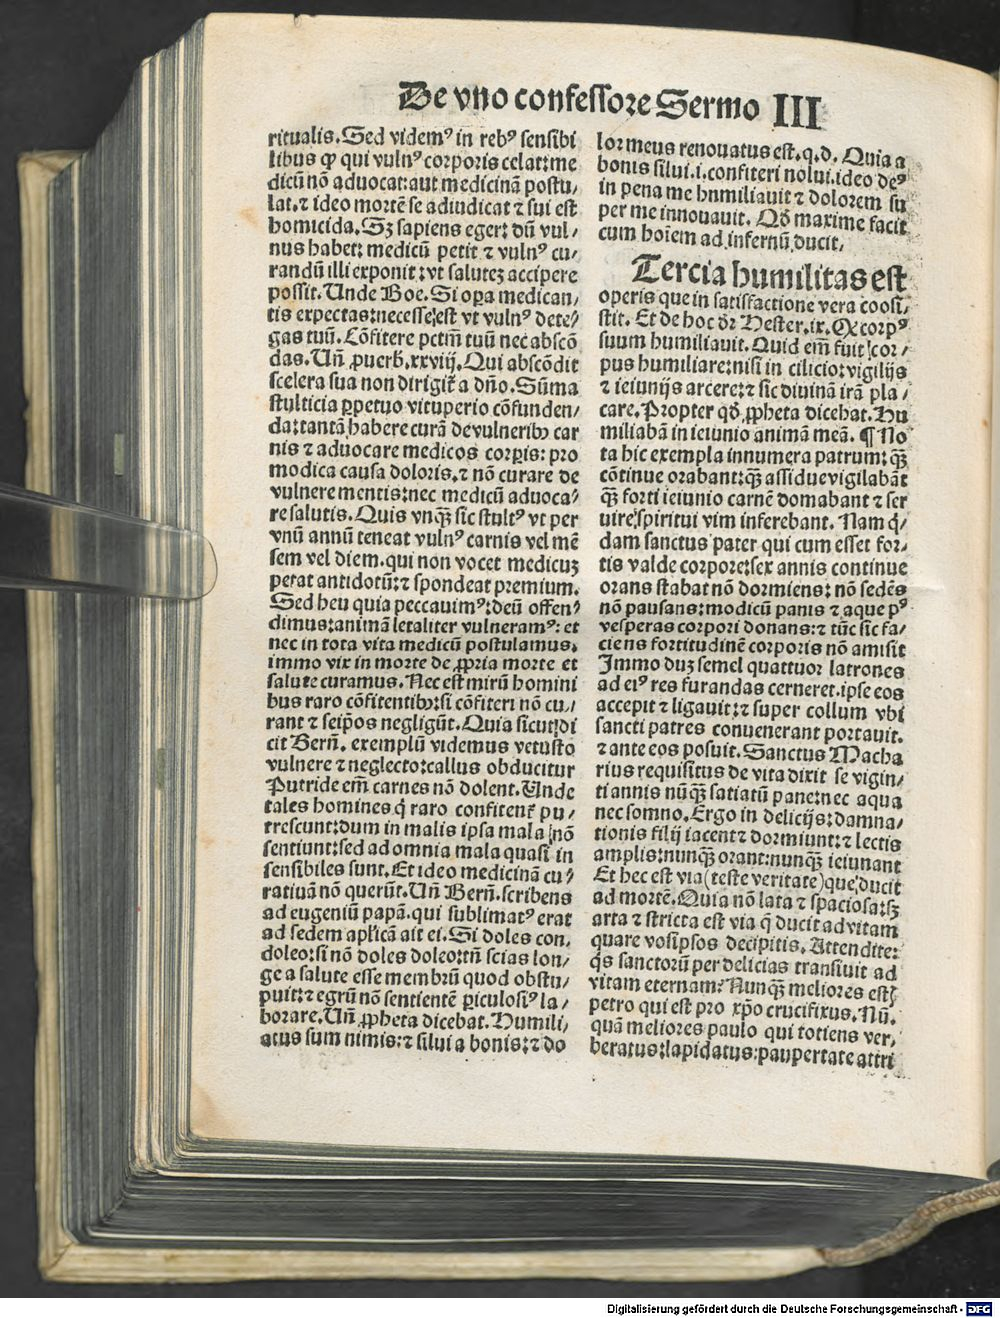 De vno confessore Sermo III
ritualis. Sed videmꝰ in rebꝰ sensibi
libus ꝙ qui vulnꝰ corporis celat: me
dicū nō aduocat: aut medicinā postu⸗
lat. ⁊ ideo mortē se adiudicat ⁊ sui est
homicida. Sꝫ sapiens eger: dū vul⸗
nus habet: medicū petit ⁊ vulnꝰ cu⸗
randū illi exponit: vt salutez accipere
possit. Unde Boe. Si oꝑa medican⸗
tis expectas: necesse est vt vulnꝰ dete⸗
gas tuū. Cōfitere pctm̄ tuū nec abscō
das. Un̄ ꝓuerb̄. xxviij. Qui abscōdit
scelera sua non dirigit᷑ a dn̄o. Sūma
stulticia ꝑpetuo vituperio cōfunden⸗
da: tantā habere curā de vulneribꝫ car
nis ⁊ aduocare medicos corꝑis: pro
modica causa doloris. ⁊ nō curare de
vulnere mentis: nec medicū aduoca⸗
re salutis. Quis vnqꝫ̄ sic stultꝰ vt per
vnū annū teneat vulnꝰ carnis vel mē
sem vel diem. qui non vocet medicuꝫ
petat antidotū: ⁊ spondeat premium.
Sed heu quia peccauimꝰ: deū offen⸗
dimus: animā letaliter vulneramꝰ: et
nec in tota vita medicū postulamus.
immo vix in morte de ꝓpria morte et
salute curamus. Nec est mirū homini
bus raro cōfitentibꝫ: si cōfiteri nō cu⸗
rant ⁊ seip̄os negligūt. Quia sicut di
cit Bern̄. exemplū videmus vetusto
vulnere ⁊ neglecto: callus obducitur
Putride em̄ carnes nō dolent. Unde
tales homines q̇ raro confitent᷑ pu⸗
trescunt: dum in malis ipsa mala nō
sentiunt: sed ad omnia mala quasi in
sensibiles sunt. Et ideo medicinā cu⸗
ratiuā nō querūt. Un̄ Bern̄. scribens
ad eugeniū papā. qui sublimatꝰ erat
ad sedem apl̄icā ait ei. Si doles con⸗
doleo: si nō doles doleo: tn̄ scias lon⸗
ge a salute esse membrū quod obstu⸗
puit: ⁊ egrū nō sentientē ꝑiculosiꝰ la⸗
borare. Un̄ ꝓpheta dicebat. Humili⸗
atus sum nimis: ⁊ silui a bonis: ⁊ do
lor meus renouatus est. q. d. Quia a
bonis silui. i. confiteri nolui. ideo deꝰ
in pena me humiliauit ⁊ dolorem su
per me innouauit. Qd̄ maxime facit
cum hoīem ad infernū ducit.
Tercia humilitas est
operis que in satisfactione vera coosi⸗
stit. Et de hoc dr̄ Hester. ix. Qꝫ corpꝰ
suum humiliauit. Quid em̄ fuit cor⸗
pus humiliare: nisi in cilicio: vigilijs
⁊ ieiunijs arcere: ⁊ sic diuinā irā pla⸗
care. Propter qd̄ ꝓpheta dicebat. Hu
miliabā in ieiunio animā meā. ¶ No
ta hic exempla innumera patrum: qꝫ̄
cōtinue orabant: qꝫ̄ assidue vigilabāt
qꝫ̄ forti ieiunio carnē domabant ⁊ ser
uire spiritui vim inferebant. Nam q̇⸗
dam sanctus pater qui cum esset for⸗
tis valde corpore: sex annis continue
orans stabat nō dormiens: nō sedēs
nō pausans: modicū panis ⁊ aque pꝰ
vesperas corpori donans: ⁊ tūc sic fa⸗
ciens fortitudinē corporis nō amisit
Immo duꝫ semel quattuor latrones
ad eiꝰ res furandas cerneret. ipse eos
accepit ⁊ ligauit: ⁊ super collum vbi
sancti patres conuenerant portauit.
⁊ ante eos posuit. Sanctus Macha
rius requisitus de vita dixit se vigin⸗
ti annis nūqꝫ̄ satiatū pane: nec aqua
nec somno. Ergo in delicijs: damna⸗
tionis filij iacent ⁊ dormiunt: ⁊ lectis
amplis: nunqꝫ̄ orant: nunqꝫ̄ ieiunant
Et hec est via (teste veritate) que ducit
ad mortē. Quia nō lata ⁊ spaciosa: sꝫ
arta ⁊ stricta est via q̄ ducit ad vitam
quare vosipsos decipitis. Attendite:
q̇s sanctorū per delicias transiuit ad
vitam eternam? Nunqꝫ̄ meliores est
petro qui est pro xp̄o crucifixus. Nū⸗
quā meliores paulo qui totiens ver⸗
beratus: lapidatus: paupertate attri
Digitalisierung gefördert durch die Deutsche Forschungsgemeinschaft - DFG